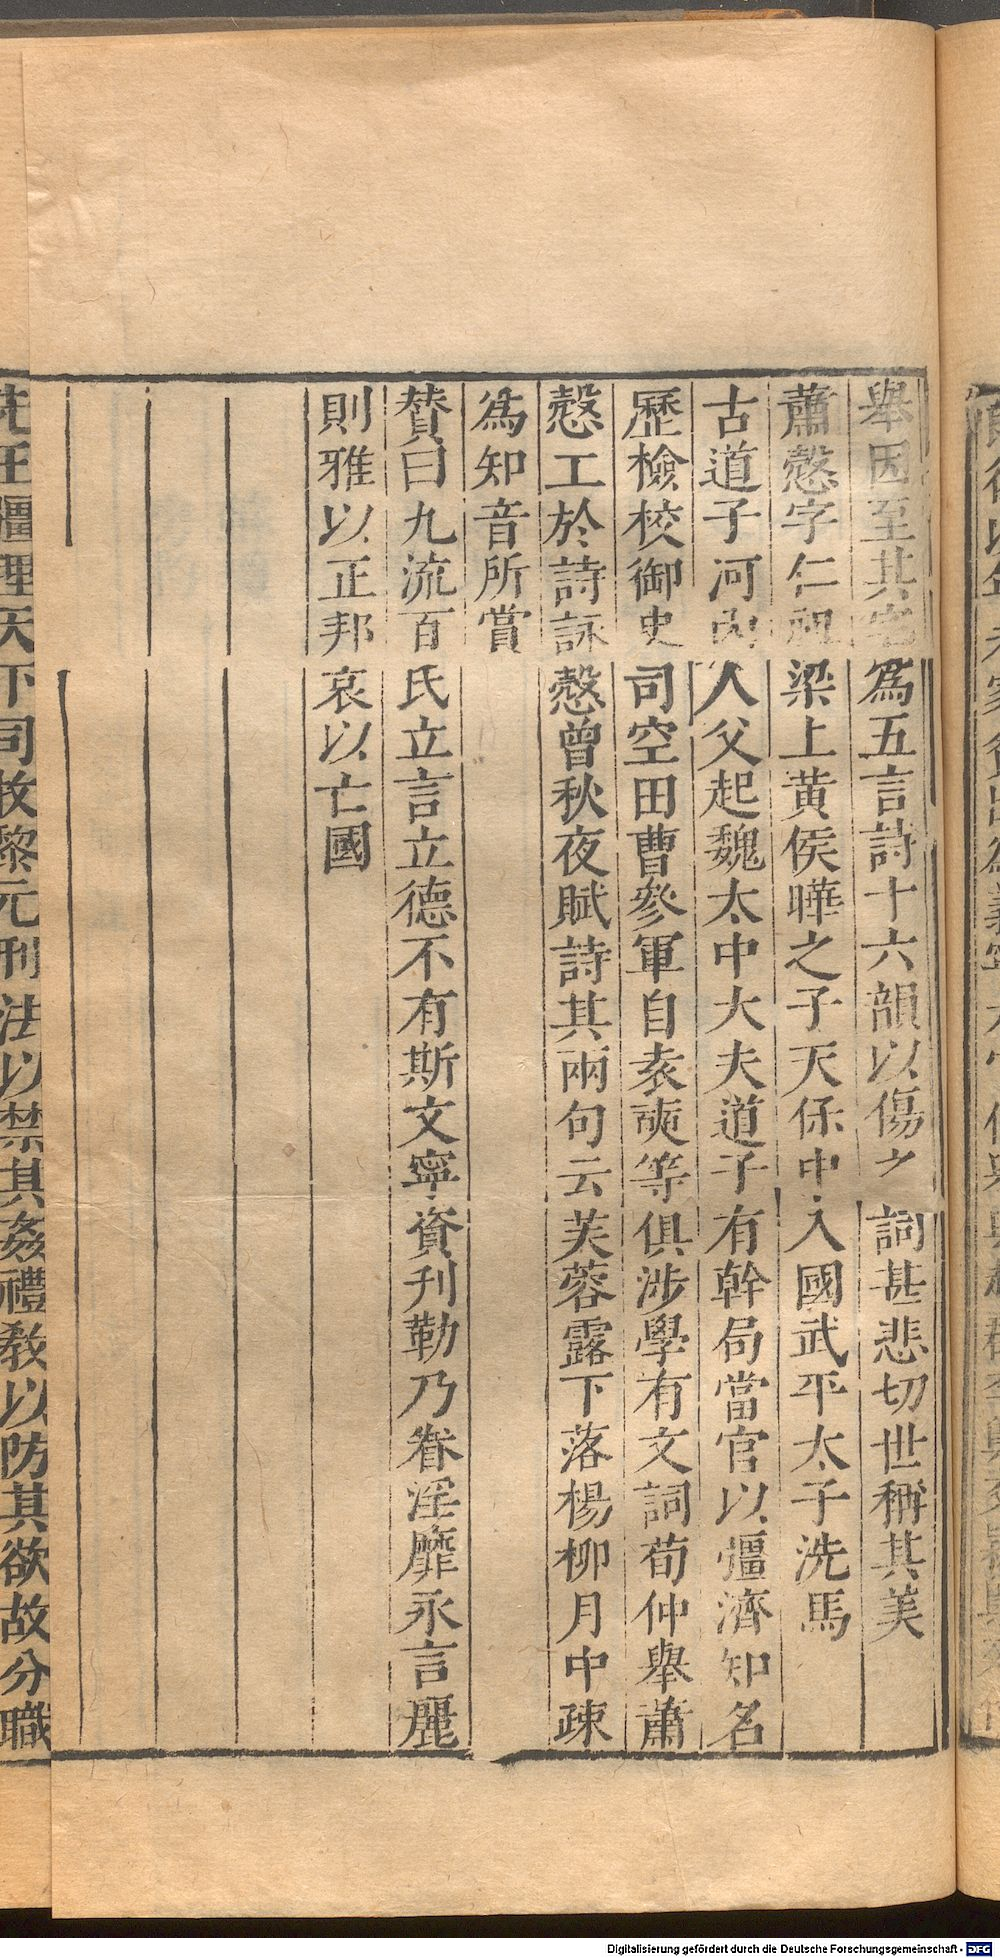 舉因至其宅爲五言詩十六韻以傷之詞甚悲切世稱其美
蕭慤字仁祖梁上黃侯曄之子天保中入國武平太子洗馬
古道子河内人父起魏太中大夫道子有幹局當官以彊濟知名
歷檢校御史司空田曹參軍自袁奭等俱涉學有文詞荀仲舉蕭
慤工於詩詠慤曾秋夜賦詩其兩句云芙蓉露下落楊柳月中疎
爲知音所賞
贊曰九流百氏立言立德不有斯文寧資刊勒乃眷淫靡永言麗
則雅以正邦哀以亡國
下司牧黎元刑法以禁其姦禮敎以防其欲故分職
Digitalisierung gefördert durch die Deutsche Forschungsgemeinschaft - DFG